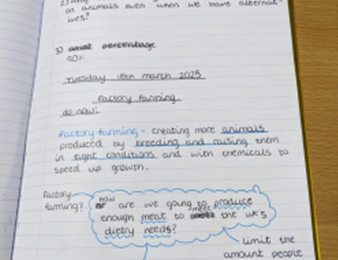 on animals even when we have alternat-
ives?
3) what percentage
90%
Tuesday 18th march 2025
Factory Farming
do now:
factory farming - creating more animals
produced by breeding and raising them
in tight conditions and with chemicals to
speed up growth.
Factory farming?
how are we going to produce
enough meat to meet the UK's
dietry needs?
limit the
amount people